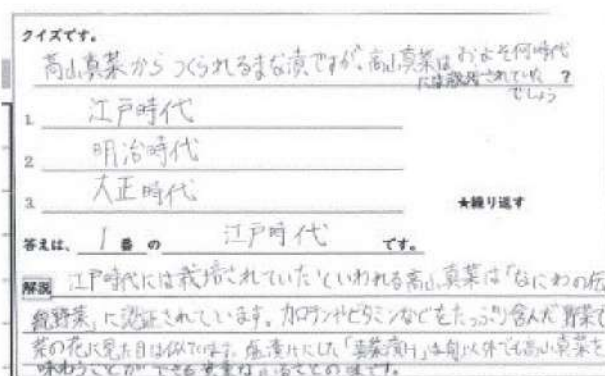 クイズです。
高山真菜からつくられるまな漬ですが、高山真菜はおよそ何時代
には栽培されていた?
でしょう
1. 江戸時代
2. 明治時代
3. 大正時代
★繰り返す
答えは、1番の 江戸時代 です。
解説 江戸時代には栽培されていたといわれる高山真菜は「なにわの伝
統野菜」に認証されています。カロテンやビタミンなどをたっぷり含んだ野菜で
菜の花に見た目は似ています。塩漬けにした「真菜漬け」は旬以外でも高山真菜を
味わうことができる貴重なふるさとの味です。